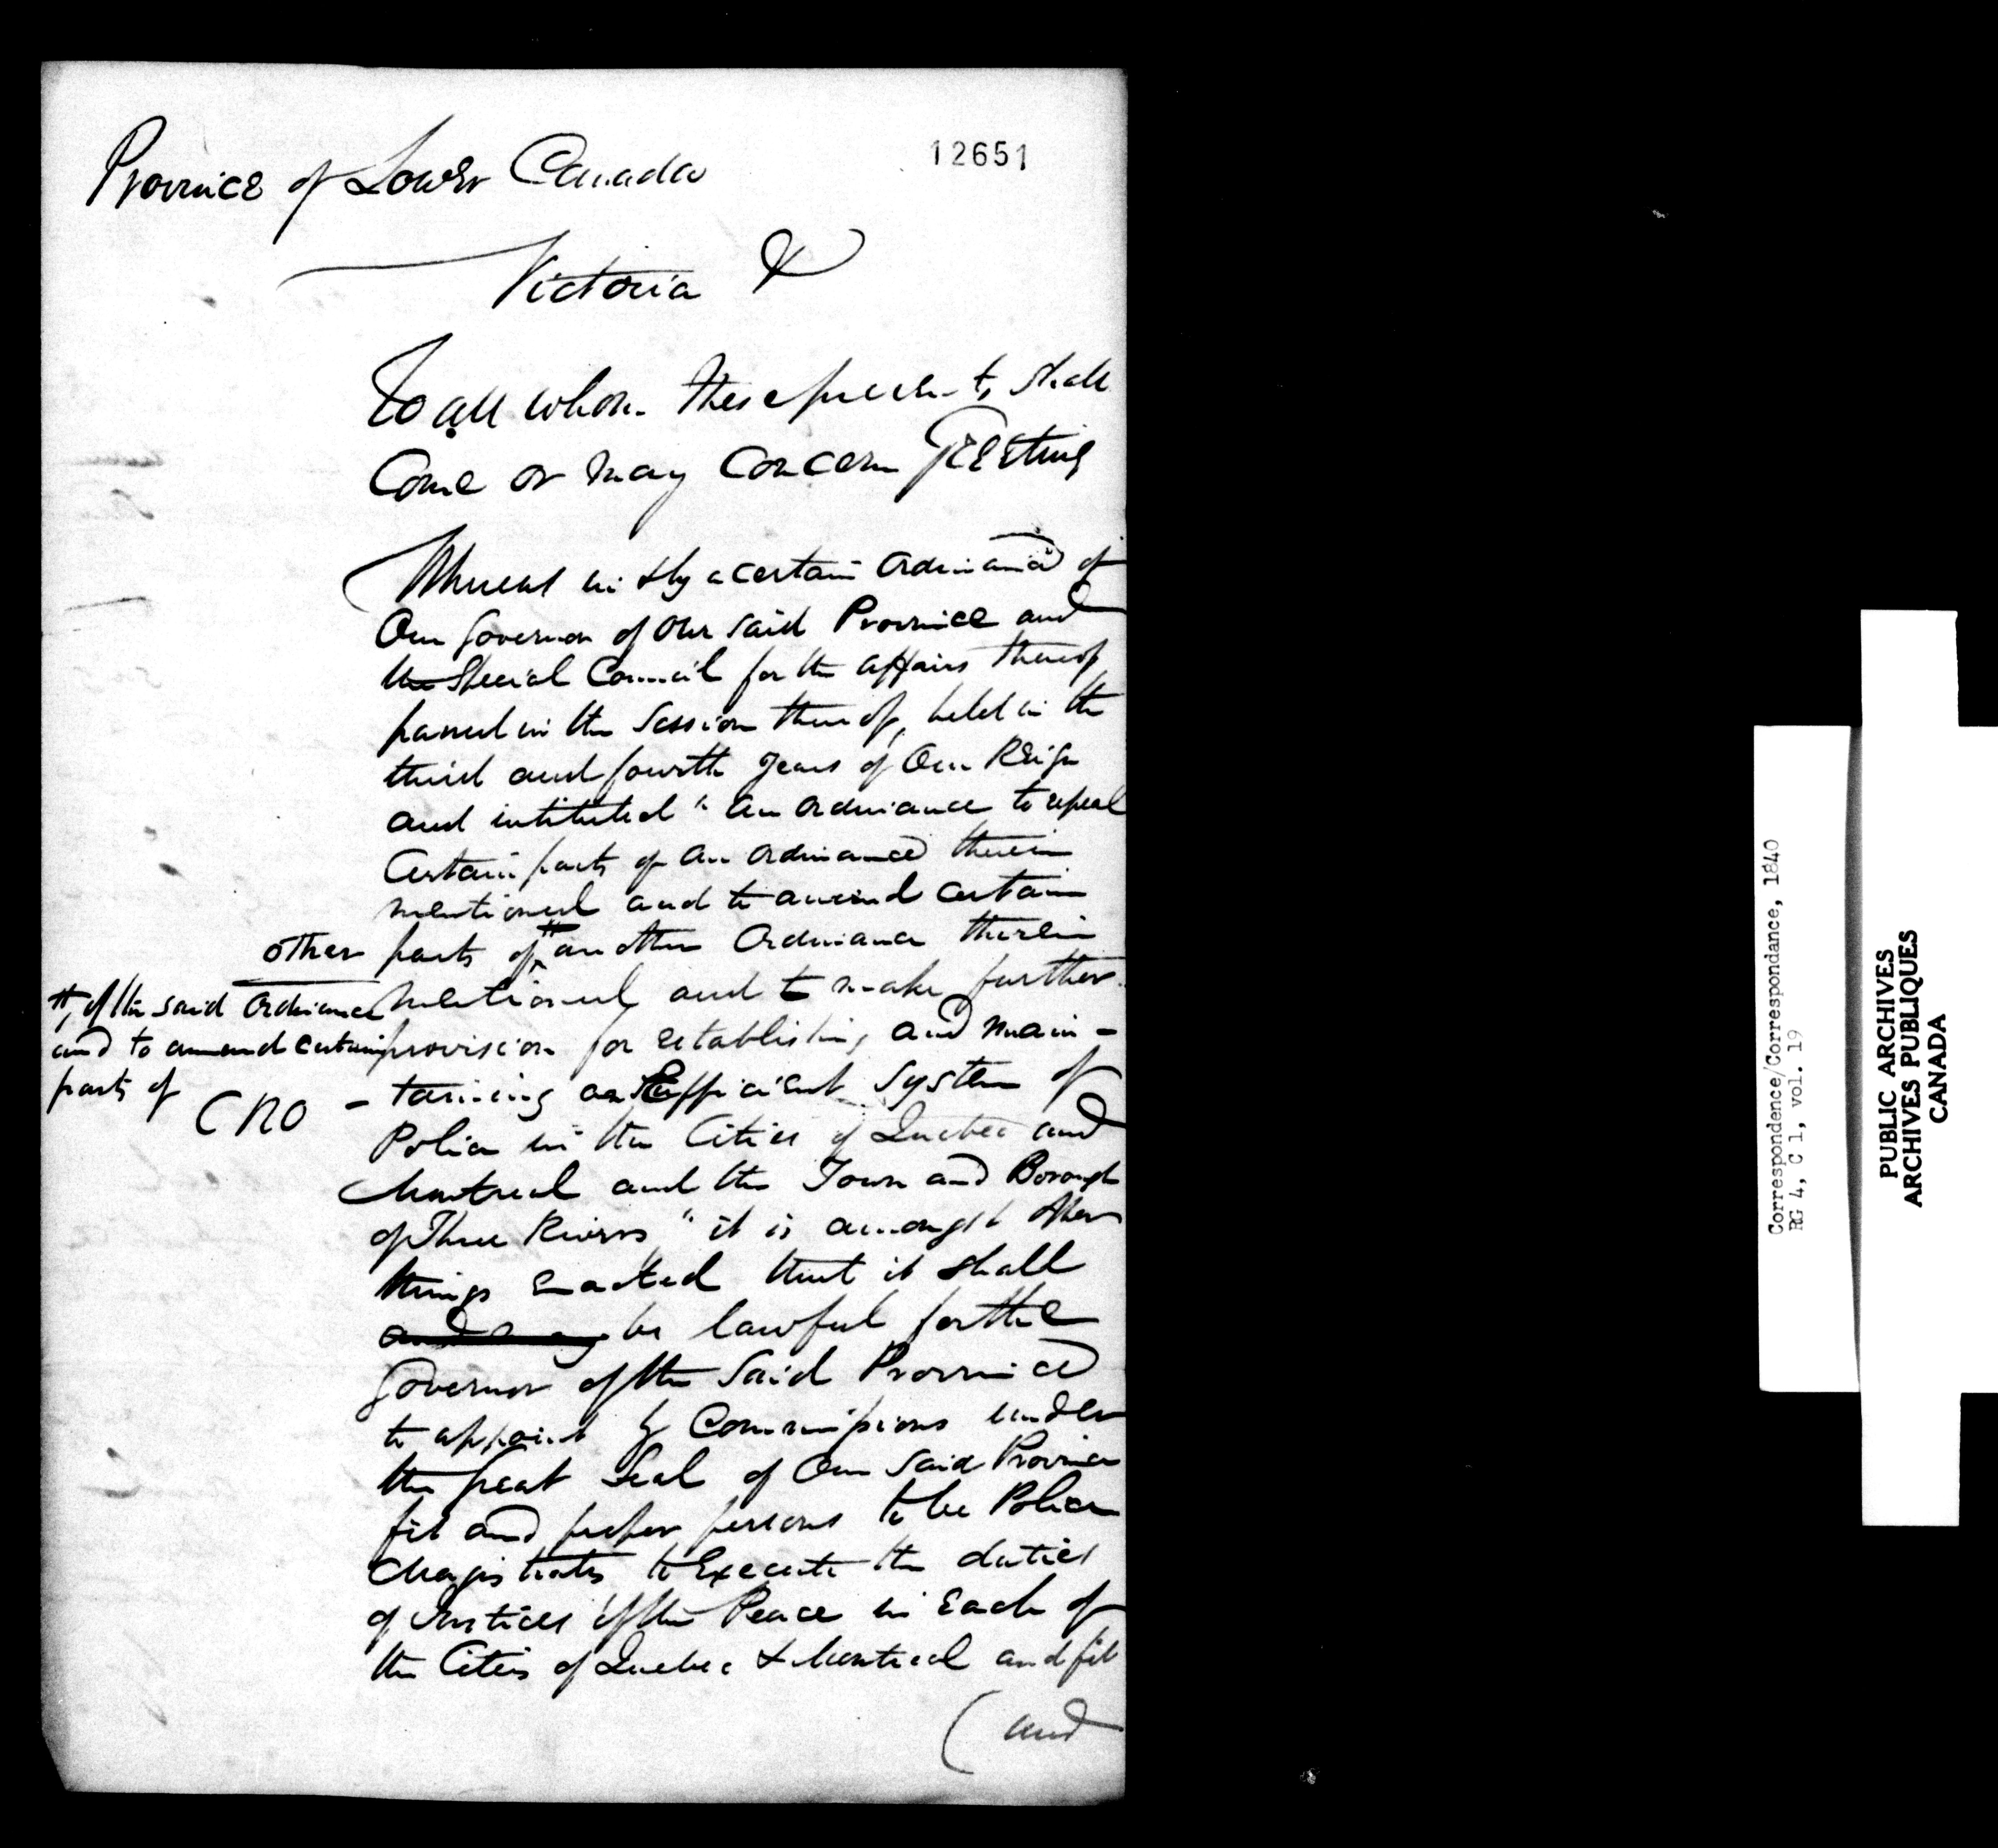 12651
Province of Lower Canada
Victoria &
To all whom these presents shall
Come or may Concern Greeting
Whereas in & by a certain Ordinance of
Our Governor of Our said Province and
the Special Council for the affairs thereof
passed in the Session thereof, held in the
third and fourth years of Our Reign
and intituled "An Ordinance to repeal
Certain parts of an Ordinance therein
mentioned and to amend certain
other parts of # another Ordinance therein
mentioned and to make further
provision for establishing and main-
-taining an Efficient System of
Police in the Cities of Quebec and
Montreal and the Town and Borough
of Three Rivers" it is amongst other
things enacted that it shall
be lawful for the
Governor of the Said Province
to appoint by Commissions under
the Great Seal of Our Said Province
fit and proper persons to be Police
Magistrates to Execute the duties
of Justices of the Peace in Each of
the Cities of Quebec & Montreal and fit
(and
#, of the said Ordinance
and to amend certain
parts of
Correspondence/Correspondance, 1840
RG 4, C 1, vol. 19
PUBLIC ARCHIVES
ARCHIVES PUBLIQUES
CANADA